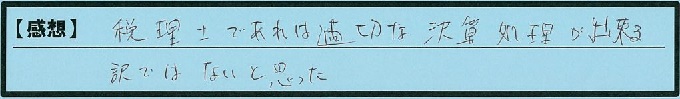 【感想】 税理士であれば適切な決算処理が出来る
訳ではないと思った